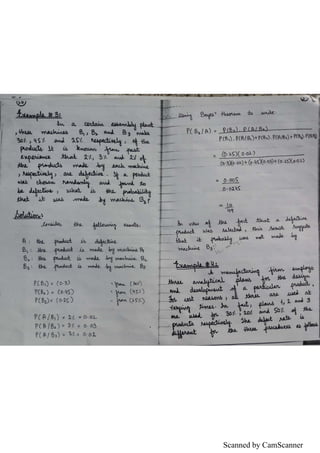 Example # 3:
In a certain assembly plant
, three machines B₁, B₂ and B₃ make
30%, 45% and 25% respectively, of the
products. It is known from past
experience that 2%, 3% and 2% of
the products made by each machine
, respectively, are defective. If a product
was chosen randomly and found to
be defective, what is the probability
that it was made by machine B₃?
Solution:-
Consider the following events:
A: the product is defective.
B₁: the product is made by machine B₁
B₂: the product is made by machine B₂
B₃: the product is made by machine B₃
P(B₁) = (0.3) - from (30%)
P(B₂) = (0.45) - from (45%)
P(B₃) = (0.25) - from (25%)
P(A/B₁) = 2% = 0.02
P(A/B₂) = 3% = 0.03
P(A/B₃) = 2% = 0.02
Using Bayes' theorem to write
P(B₃/A) = P(B₃) . P(A/B₃)
P(B₁).P(A/B₁)+P(B₂).P(A/B₂)+P(B₃).P(A/B₃)
= (0.25)(0.02)
(0.3)(0.02)+(0.45)(0.03)+(0.25)(0.02)
= 0.005
0.0245
= 10
49
In view of the fact that a defective
product was selected, this result suggests
that it probably was not made by
machine B₃.
Example # 4:
A manufacturing firm employs
three analytical plans for the design
and development of a particular product,
For cost reasons, all three are used at
varying times. In fact, plans 1, 2 and 3
are used for 30%, 20% and 50% of the
products respectively. The defect rate is
different for the three procedures as follows
Scanned by CamScanner